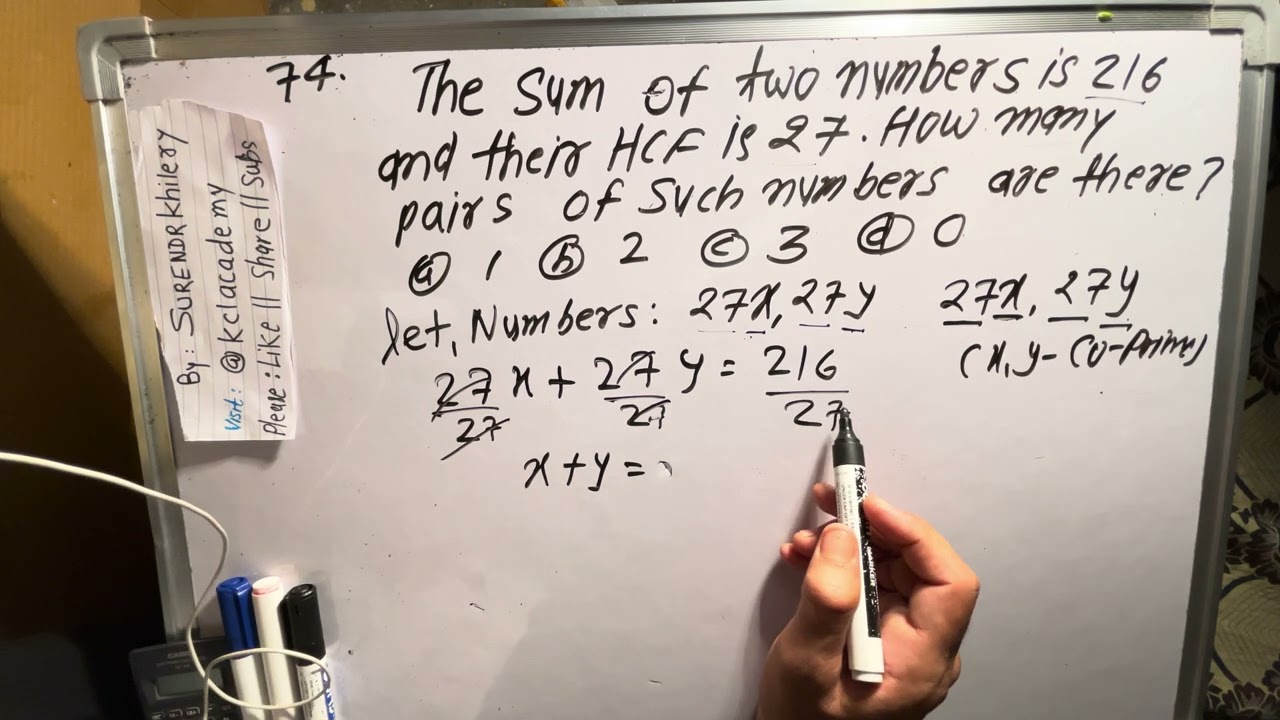 74. The Sum of two numbers is 216
and their HCF is 27. How many
pairs of Such numbers are there?
(a) 1 (b) 2 (c) 3 (d) 0
let, Numbers: 27x, 27y
27x, 27y
(x, y - Co-Prime)
27/27 x + 27/27 y = 216/27
x + y =
By: SURENDRKhilery
Visit: @kclacademy
Please: Like || Share || Subs
CASIO
MARKER